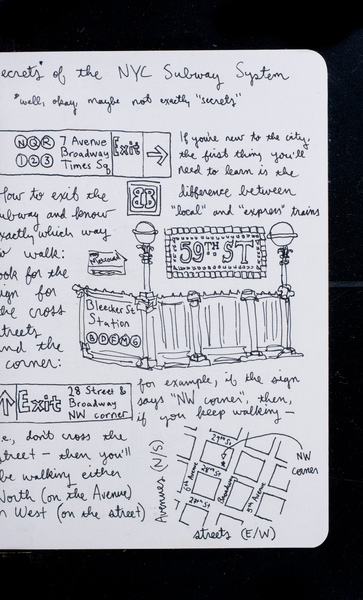 ecrets* of the NYC Subway System
*well, okay, maybe not exactly "secrets"
N Q R
1 2 3
7 Avenue
Broadway
Times Sq
Exit
If you're new to the city,
the first thing you'll
need to learn is the
difference between
"local" and "express" trains
How to exit the
ubway and know
xactly which way
to walk:
ook for the
ign for
the cross
treets
nd the
corner:
B
59TH ST
Bleecker St
Station
B D F M 6
Exit
28 Street &
Broadway
NW corner
for example, if the sign
says "NW corner", then,
if you keep walking—
e, don't cross the
treet — then you'll
be walking either
North (on the Avenue)
West (on the street)
Avenues (N/S)
29th St
28th St
Broadway
NW
corner
streets (E/W)